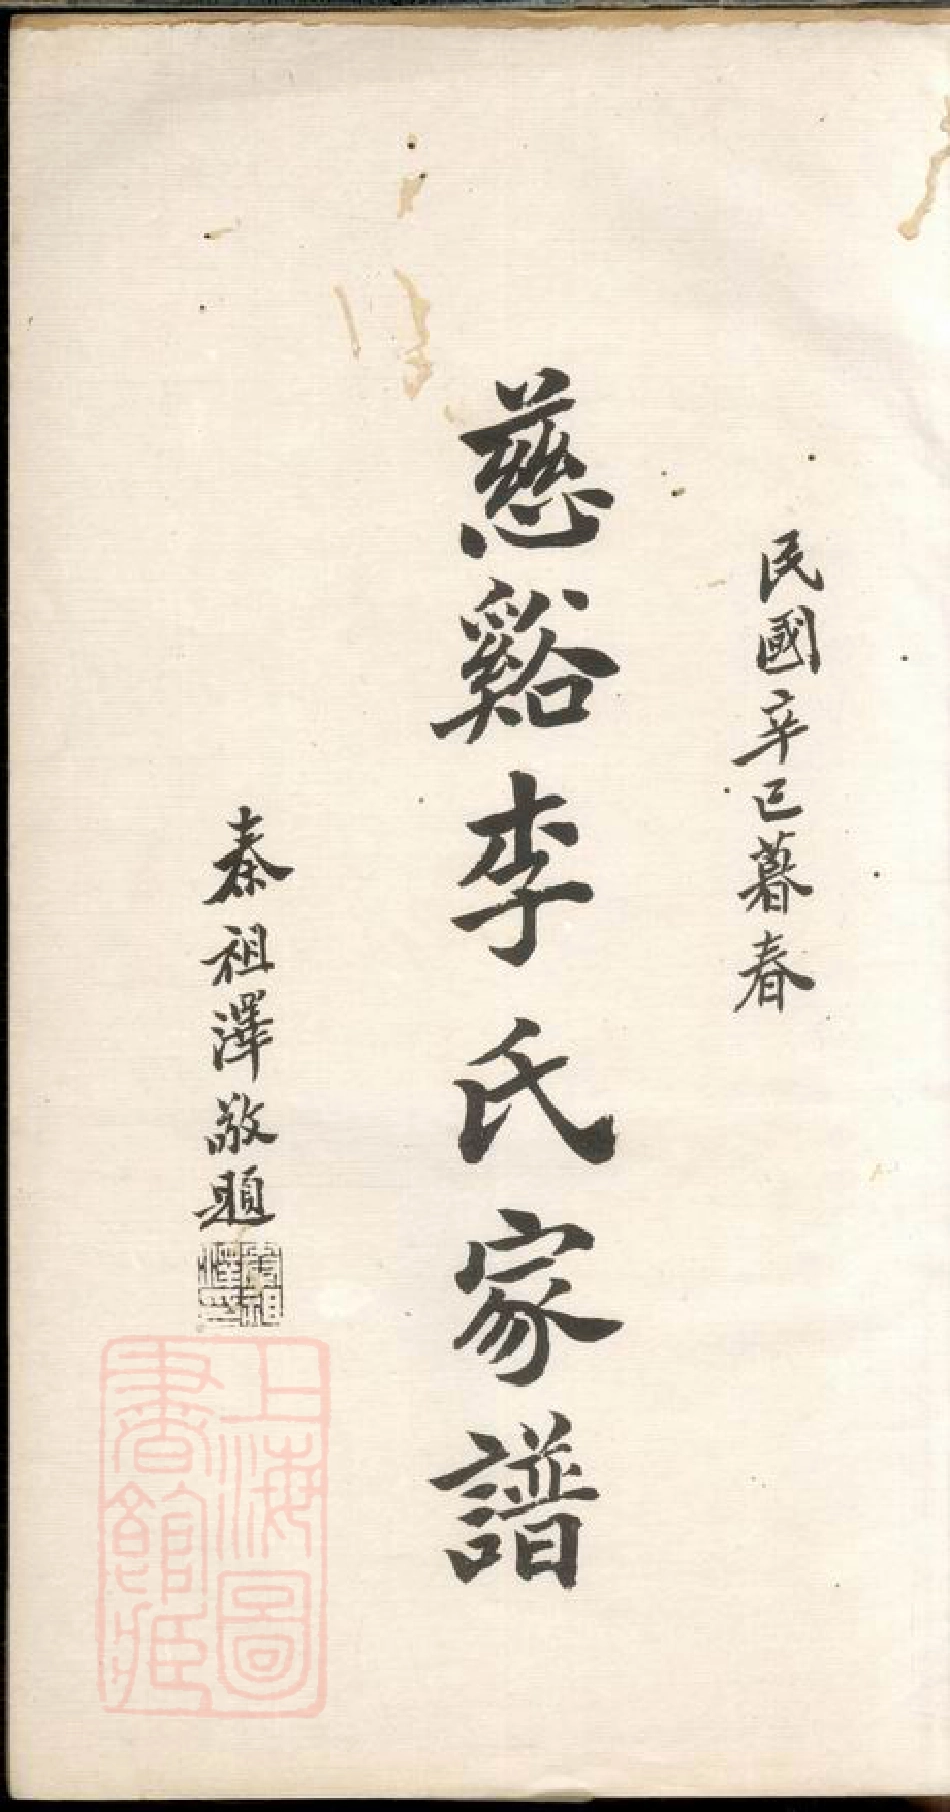 民國辛巳暮春
慈谿李氏家譜
秦祖澤敬題
上海圖
書館藏